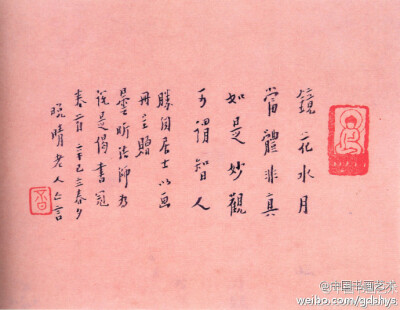 鏡花水月
當體非真
如是妙觀
可謂智人
居士以画
冊贈
曇昕法師為
說是偈書冠
首辛巳三春
晚晴老人亡言
@中国书画艺术
weibo.com/gdshys